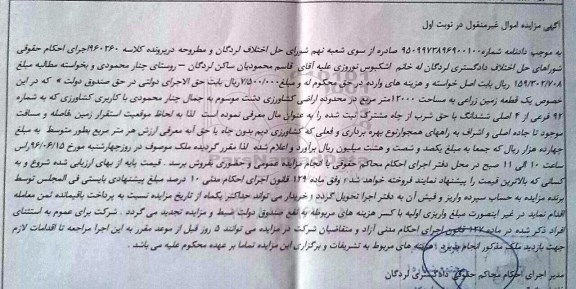 آگهی مزایده اموال غیرمنقول در نوبت اول
به موجب دادنامه شماره ۹۵۰۹۹۷۳۸۹۶۹۰۰۱۰۰ صادره از سوی شعبه نهم شورای حل اختلاف لردگان و مطروحه درپرونده کلاسه ۹۶۰۲۶۰ اجرای احکام حقوقی
شوراهای حل اختلاف دادگستری لردگان له خانم اشکبوس نوروزی علیه آقای قاسم محمودیان ساکن لردگان – روستای چنار محمودی و بخواسته مطالبه مبلغ
۱۵۹/۳۰۲/۷۰۸ ریال بابت اصل خواسته و هزینه های وارده در حق محکوم له و مبلغ ۷/۵۰۰/۰۰۰ ریال بابت حق الاجرای دولتی در حق صندوق دولت » که در این
خصوص یک قطعه زمین زراعی به مساحت ۱۲۰۰۰ متر مربع در محدوده اراضی کشاورزی دشت موسوم به جمال چنار محمودی با کاربری کشاورزی که به شماره
۹۲ فرعی از ۴ اصلی ششدانگ با حق شرب از چاه مشترک ثبت شده را به عنوان مال معرفی نموده است لذا به لحاظ موقعیت استقرار زمین ،فاصله و مسافت
موجود تا جاده اصلی و اشراف به راههای همجوار،نوع بهره برداری و فعلی که کشاورزی دیم بدون چاه با حق آبه معرفی ارزش هر متر مربع بطور متوسط به مبلغ
چهارده هزار ریال که جمعا به مبلغ یکصد و شصت و هشت میلیون ریال برآورد و اعلام شده لذا مقرر گردیده ملک موصوف در روزچهارشنبه مورخ ۹۶/۰۶/۱۵ راس
ساعت ۱۰ الی ۱۱ صبح در محل دفتر اجرای احکام محاکم حقوقی با انجام مزایده عمومی و حضوری بفروش برسد . قیمت پایه از بهای ارزیابی شده شروع و به
کسانی که بالاترین قیمت را پیشنهاد نمایند فروخته خواهد شد وفق ماده ۱۲۹ قانون اجرای احکام مدنی ۱۰ درصد مبلغ پیشنهادی بایستی فی المجلس توسط
برنده مزایده به حساب سپرده واریز و فیش آن به دفتر اجرا تحویل گردد خریدار می تواند حداکثر یکماه از تاریخ مزایده نسبت به پرداخت باقیمانده ثمن معامله
اقدام نماید در غیر اینصورت مبلغ واریزی اولیه با کسر هزینه های مربوطه به نفع صندوق دولت ضبط و مزایده تجدید می گردد . شرکت برای عموم به استثنای
افراد ذکر شده در ماده ۱۲۷ قانون اجرای احکام مدنی آزاد و متقاضیان شرکت در مزایده می توانند ۵ روز قبل از موعد مقرر به این اجرا مراجعه تا اقدامات لازم
جهت بازدید ملک مذکور انجام پذیرد هزینه های مربوط به تشریفات و برگزاری این مزایده تماما بر عهده محکوم علیه می باشد .
مدیر اجرای احکام محاکم حقوقی دادگستری لردگان